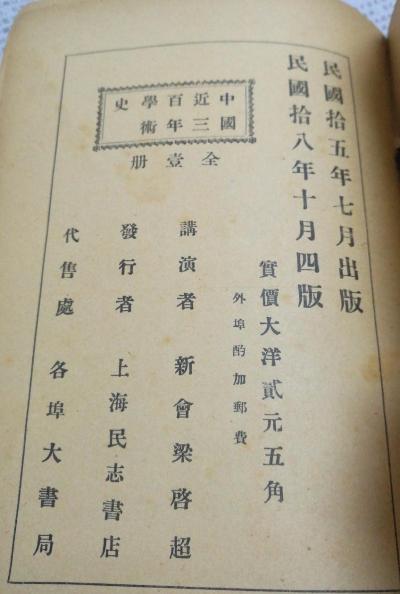 民國拾五年七月出版
民國拾八年十月四版
中國近三百年學術史
全壹册
實價大洋貳元五角
外埠酌加郵費
講演者 新會梁啓超
發行者 上海民志書店
代售處 各埠大書局